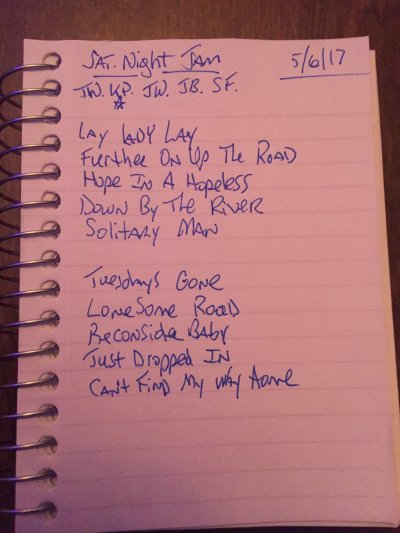 SAT. Night JAM 5/6/17
JW. KP. JW. JB. SF.
LAY LADY LAY
Further ON Up The ROAD
Hope IN A Hopeless
DOWN By The RIVER
SOLITARY MAN
Tuesdays GONE
LONeSome ROAD
Reconsider BABy
Just Dropped IN
CAN't FIND My WAy Home